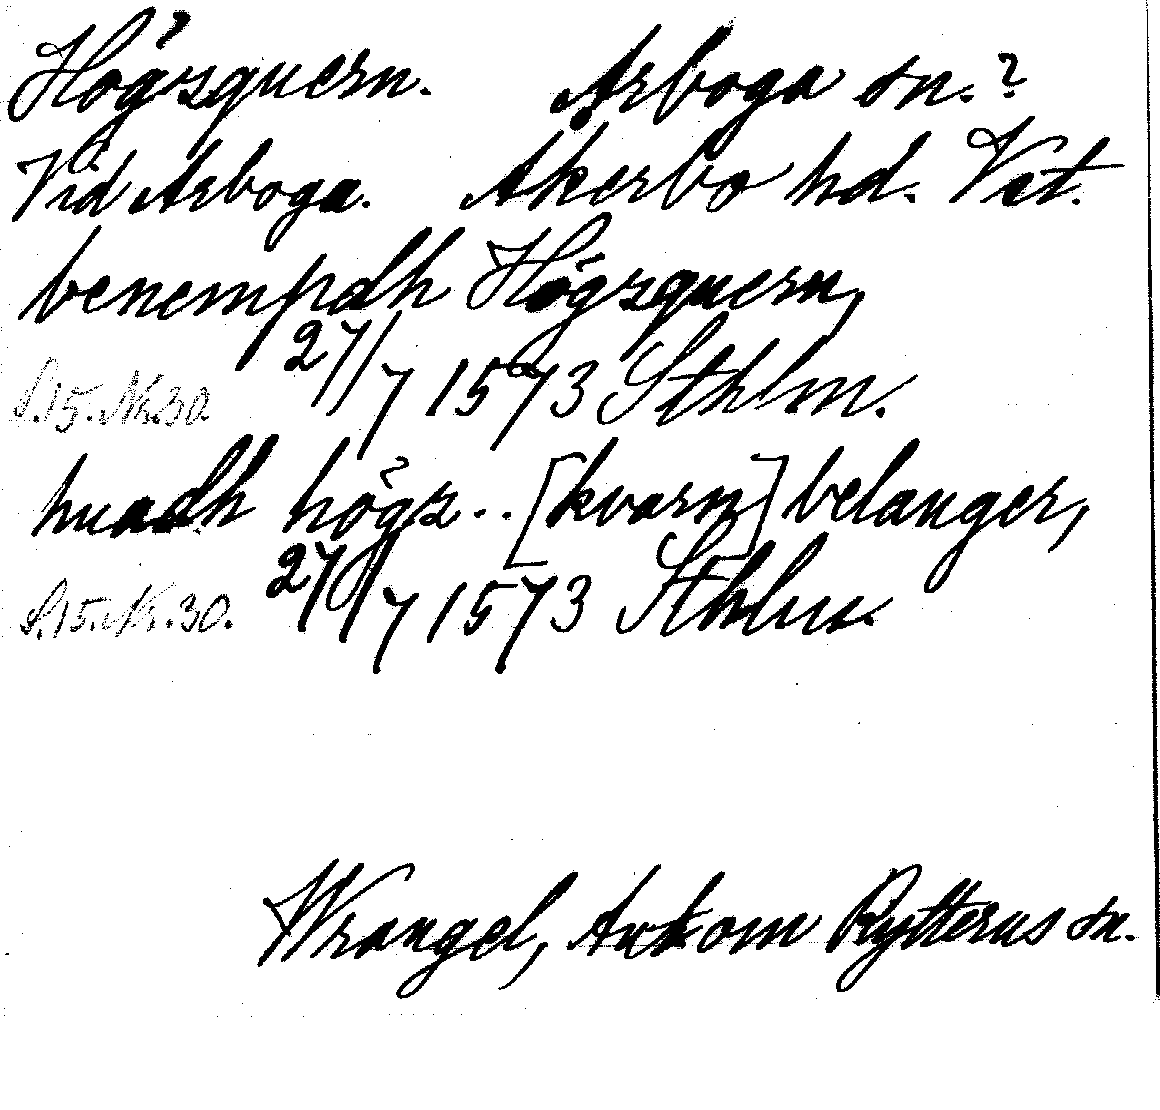 Högzquern. Arboga sn.?
Vid Arboga. Åkerbo hd. Vst.
benempdh Högzquern,
S.15. Nr.30. 27/7 1573 Sthlm.
huadh högz.. [kvarn] belanger,
S.15. Nr.30. 27/7 1573 Sthlm.
Wrangel, Ankom Rytterns sn.